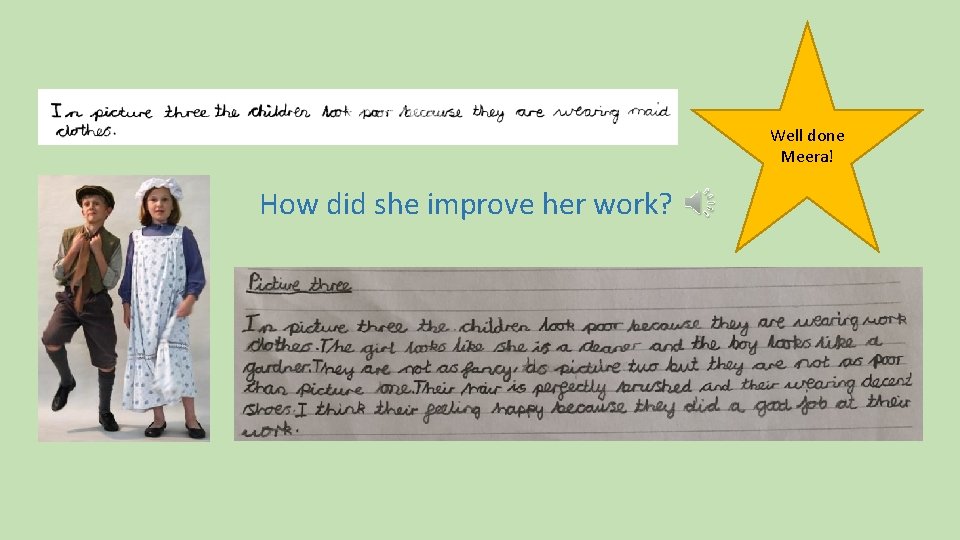 In picture three the children look poor because they are wearing maid
clothes.
Well done
Meera!
How did she improve her work?
Picture three
In picture three the children look poor because they are wearing work
clothes. The girl looks like she is a cleaner and the boy looks like a
gardner. They are not as fancy, as picture two but they are not as poor
than picture one. Their hair is perfectly brushed and their wearing decent
shoes. I think their feeling happy because they did a good job at their
work.